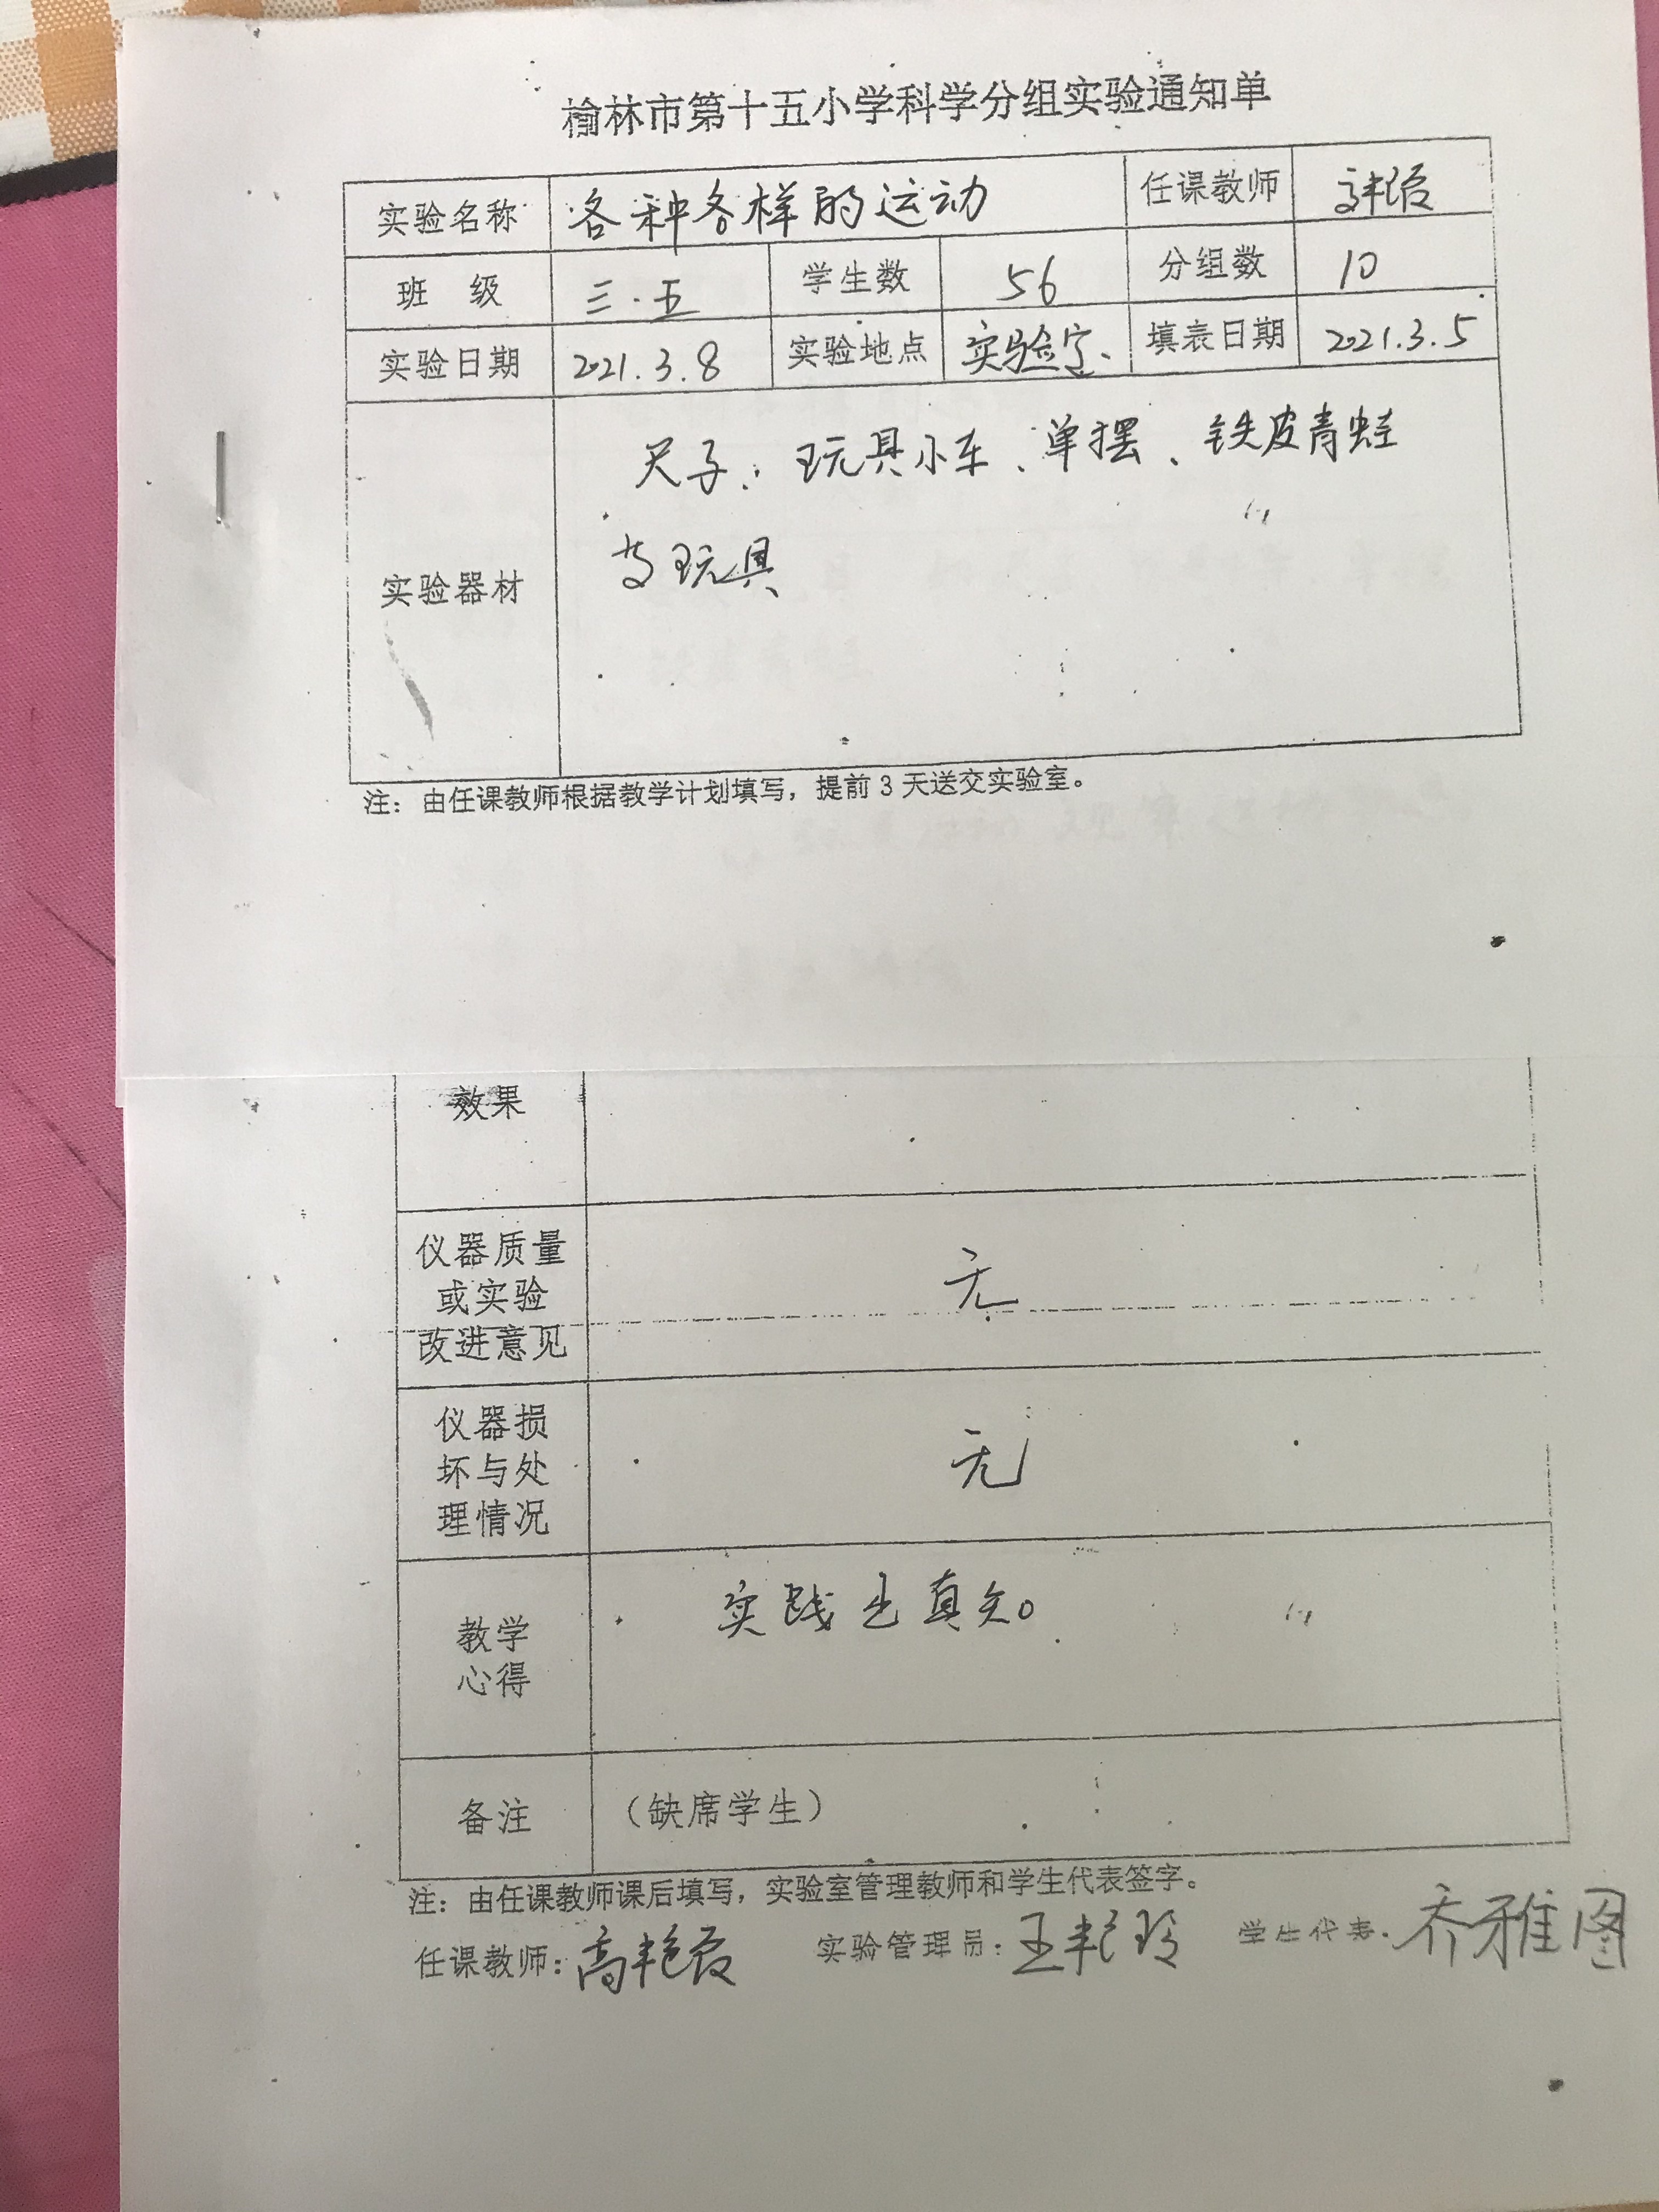 榆林市第十五小学科学分组实验通知单
实验名称 各种各样的运动 任课教师 高艳霞
班 级 三.五 学生数 56 分组数 10
实验日期 2021.3.8 实验地点 实验室、 填表日期 2021.3.5
尺子、玩具小车、单摆、铁皮青蛙
实验器材
等玩具
注：由任课教师根据教学计划填写，提前3天送交实验室。
效果
仪器质量
或实验 无
改进意见
仪器损
坏与处 无
理情况
实践出真知。
教学
心得
备注 （缺席学生）
注：由任课教师课后填写，实验室管理教师和学生代表签字。
任课教师：高艳霞 实验管理员：王艳玲 学生代表：乔雅图